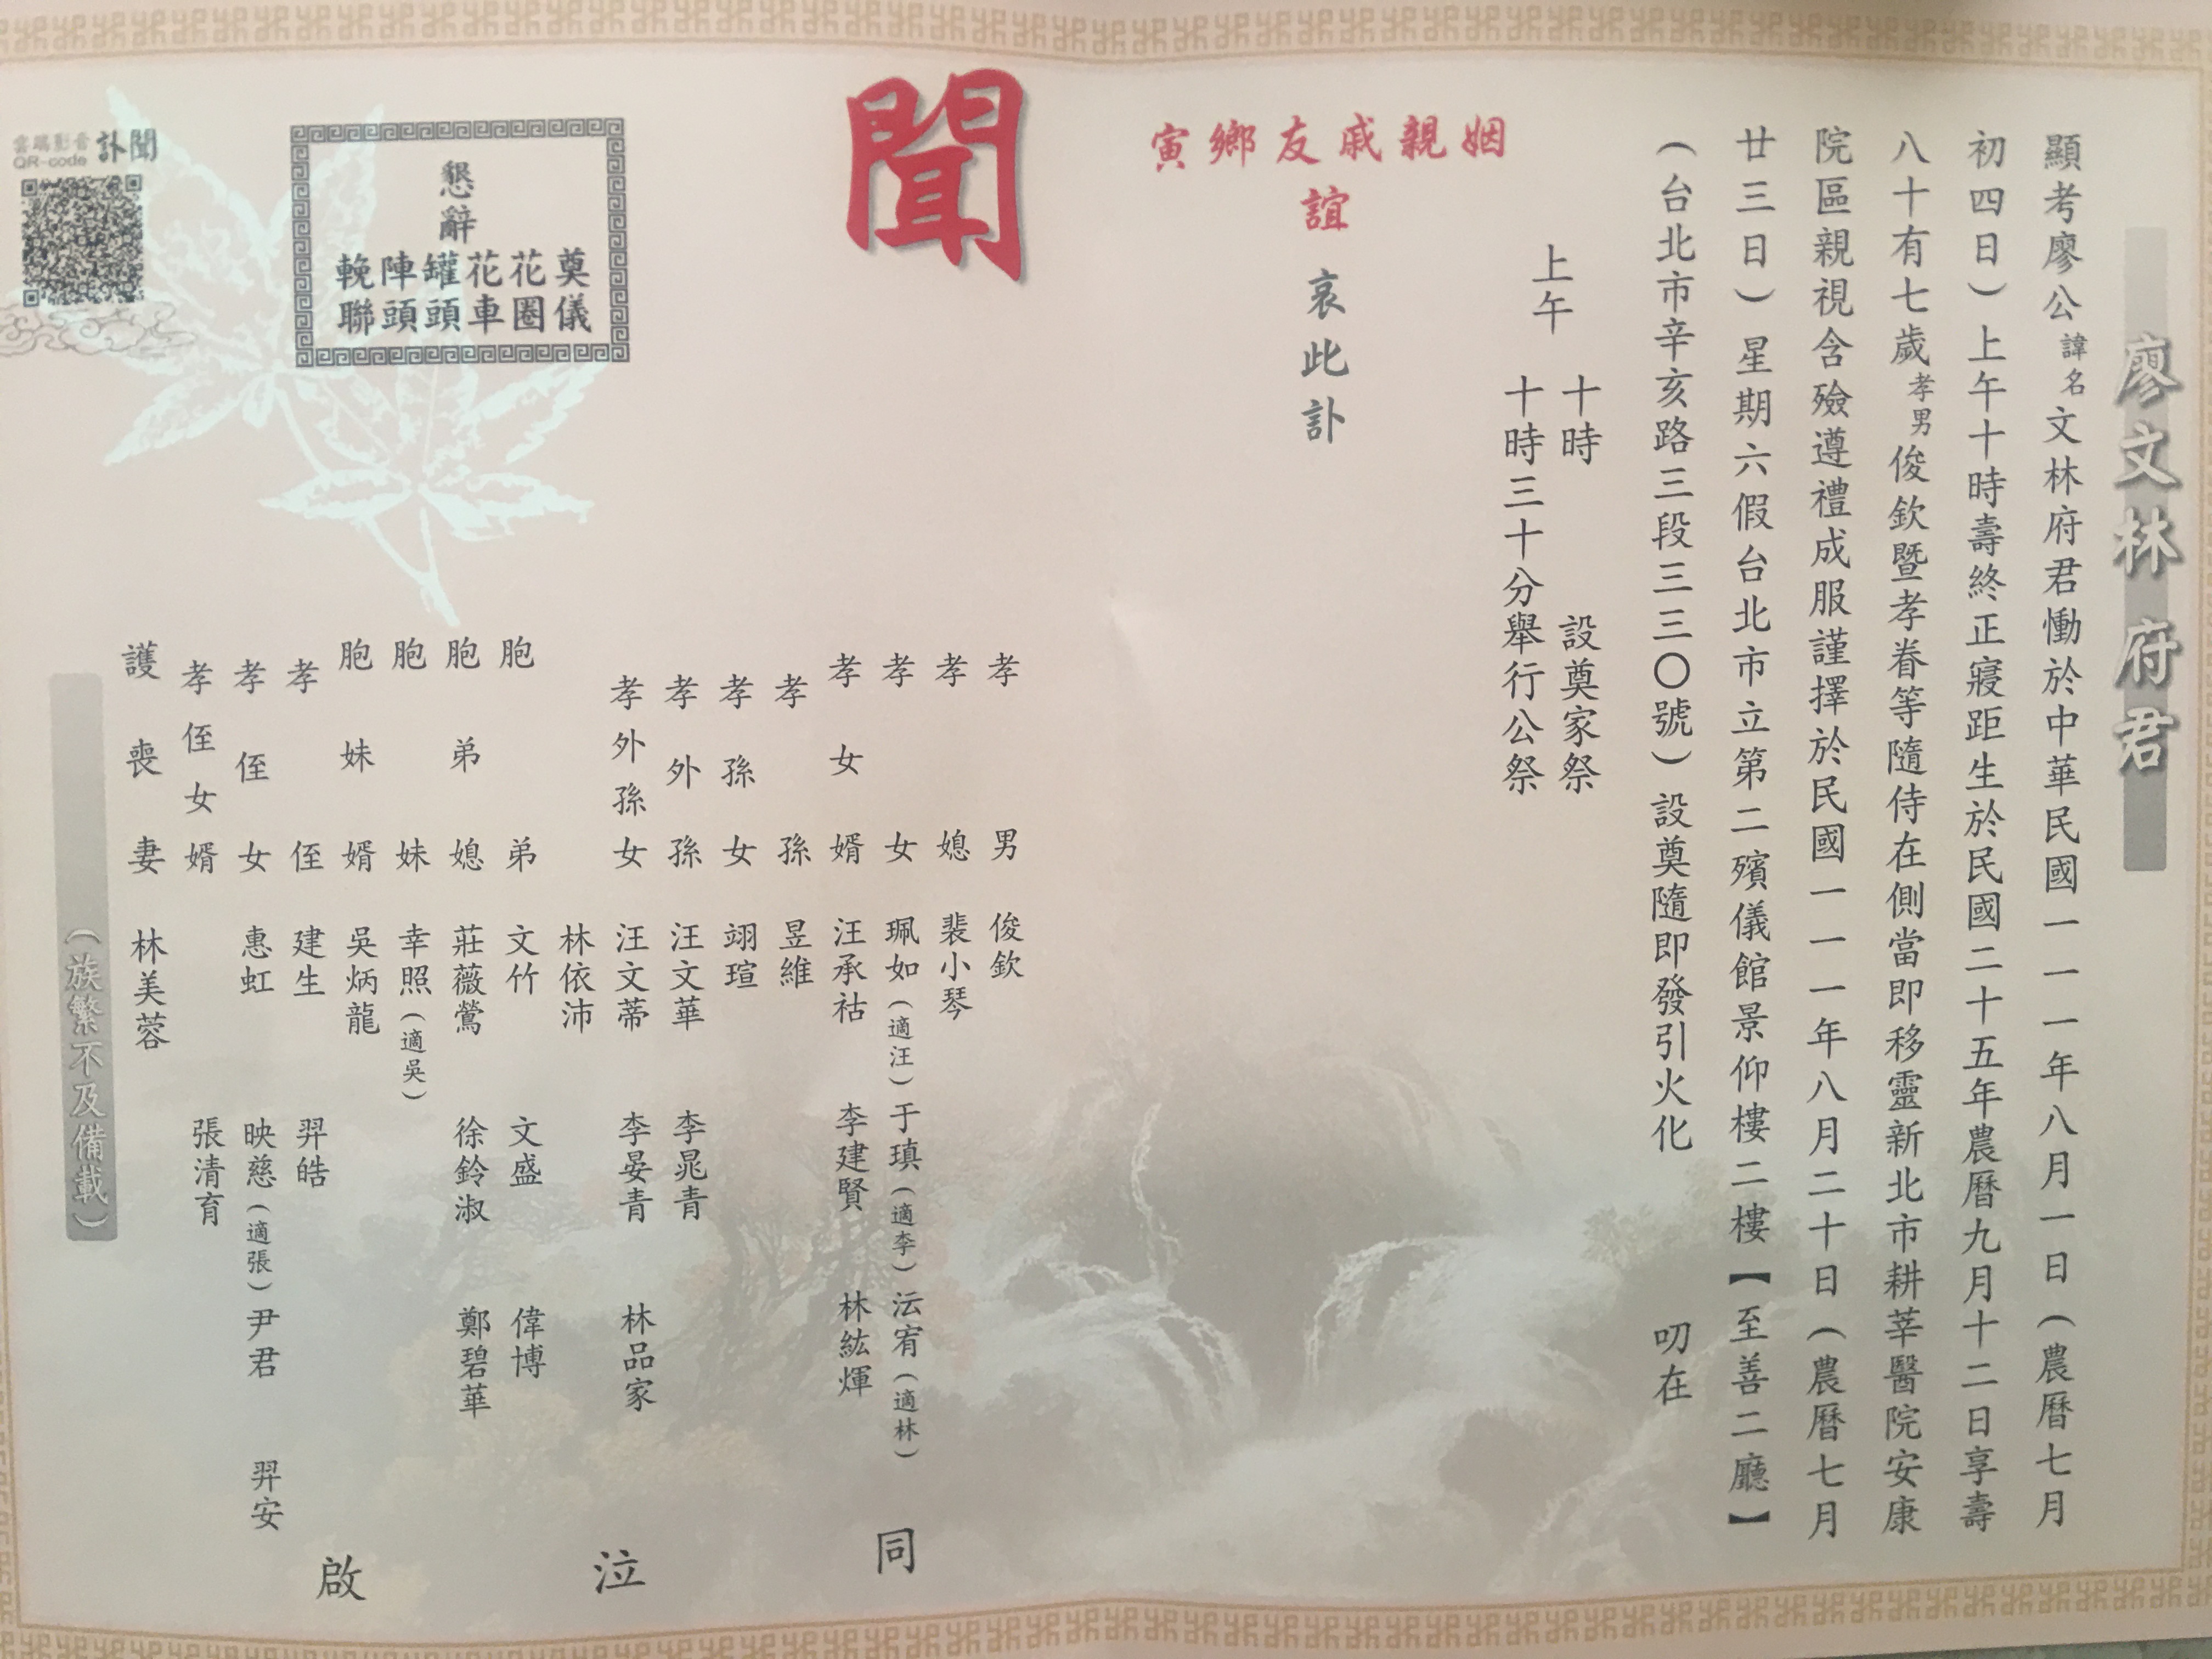 廖文林 府君
顯考廖公諱名文林府君慟於中華民國一一一年八月一日（農曆七月
初四日）上午十時壽終正寢距生於民國二十五年農曆九月十二日享壽
八十有七歲孝男俊欽暨孝眷等隨侍在側當即移靈新北市耕莘醫院安康
院區親視含殮遵禮成服謹擇於民國一一一年八月二十日（農曆七月
廿三日）星期六假台北市立第二殯儀館景仰樓二樓【至善二廳】
（台北市辛亥路三段三三〇號）設奠隨即發引火化 叨在
上午
十時 設奠家祭
十時三十分舉行公祭
姻親戚友鄉寅
誼
哀此訃
聞
孝男 俊欽
孝媳 裴小琴
孝女 珮如（適汪） 于瑱（適李） 沄宥（適林）
孝女婿 汪承祜 李建賢 林紘煇
孝孫 昱維
孝孫女 翊瑄
孝外孫 汪文華 李晁青
孝外孫女 汪文蒂 李晏青 林品家
林依沛
胞弟 文竹 文盛 偉博
胞弟媳 莊薇鶯 徐鈴淑 鄭碧華
胞妹 幸照（適吳）
胞妹婿 吳炳龍
孝侄 建生 羿皓
孝侄女 惠虹 映慈（適張） 尹君 羿安
孝侄女婿 張清育
護喪妻 林美蓉
同泣啟
（族繁不及備載）
懇辭
奠儀
花圈
花車
罐頭
陣頭
輓聯
訃聞
雲端影音
QR-code